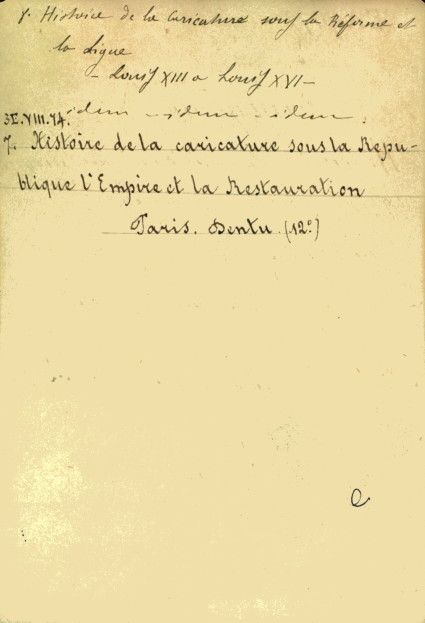 7. Histoire de la Caricature sous la Réforme et
la Ligue
- Louis XIII a Louis XVI -
idem - idem - idem.
3E.VIII.74.
7. Histoire de la caricature sous la Repu-
blique l'Empire et la Restauration
Paris. Dentu (12º)